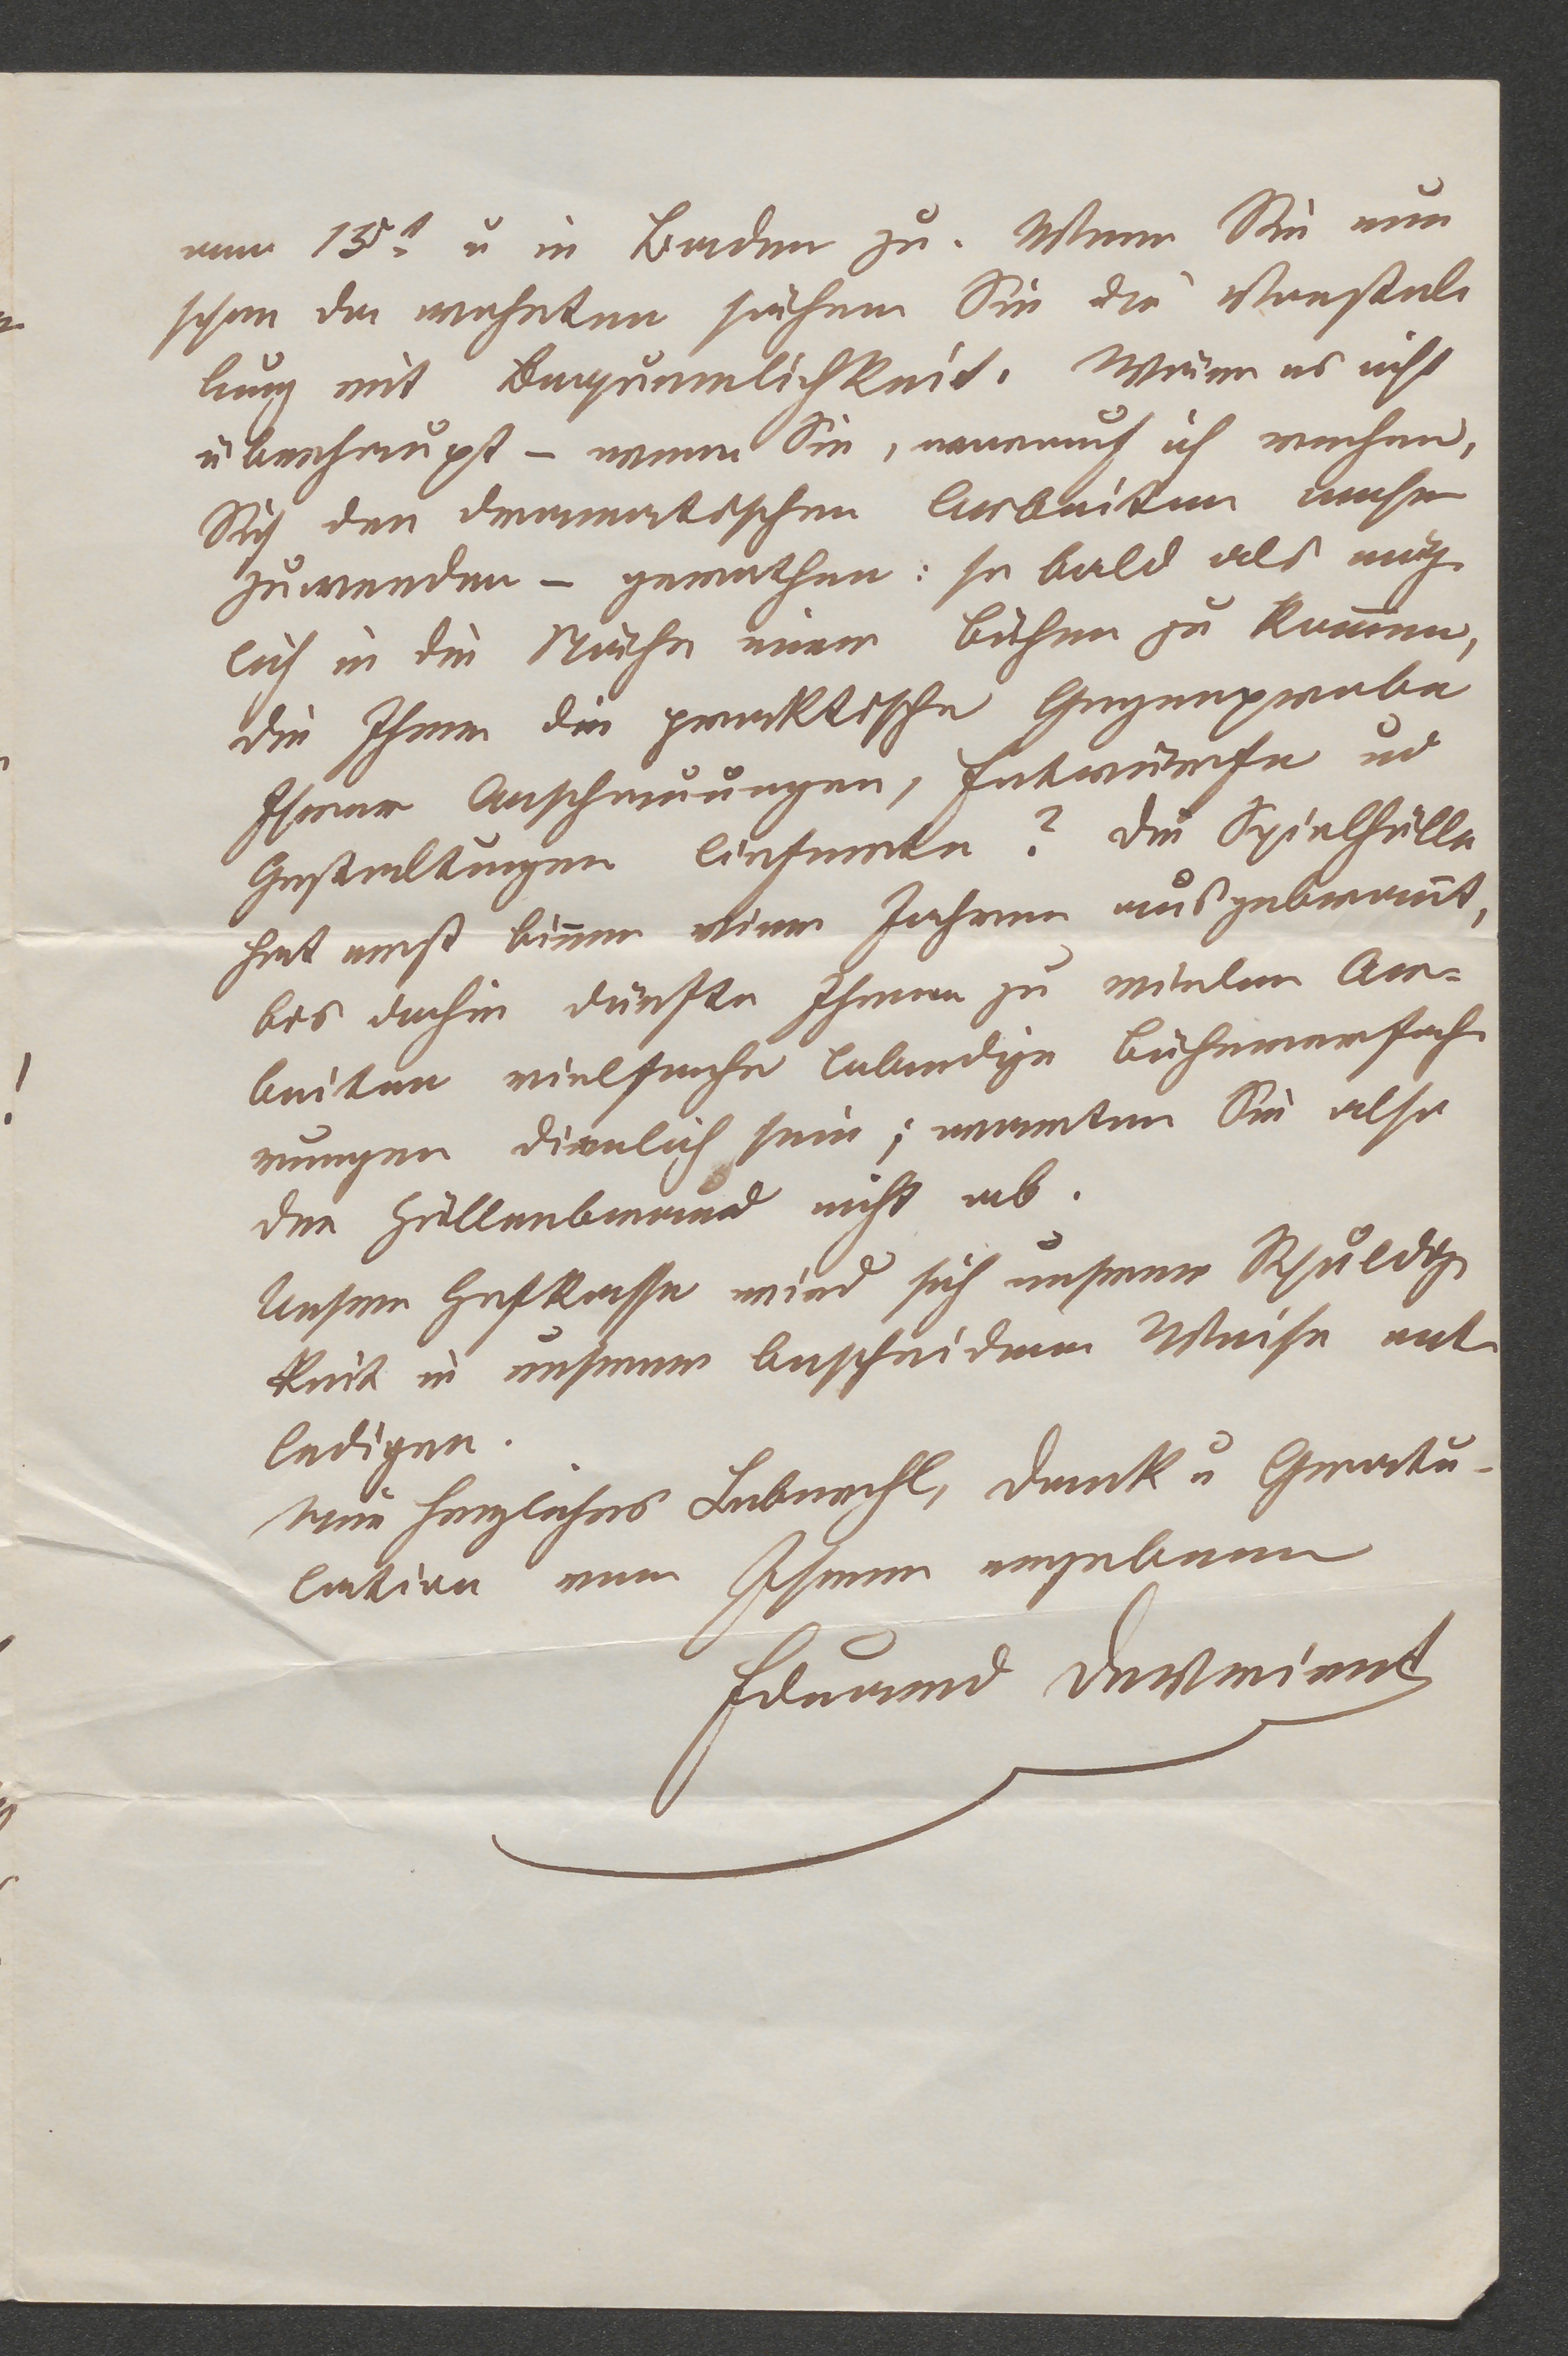 vom 15t u in Baden zu. Wenn Sie nun
schon da wohnten sähen Sie die Vorstel
lung mit Bequemlichkeit. Wäre es nicht
überhaupt – wenn Sie, worauf ich rechne,
Sich den dramatischen Arbeiten mehr
zuwenden – gerathen: so bald als mög
lich in die Nähe einer Bühne zu kommen,
die Ihnen die praktische Gegenprobe
Ihrer Anschauungen, Entwürfe ud
Gestaltungen lieferte? Die Spielhölle
hat erst binnen vier Jahren ausgebrannt,
bis dahin dürfte Ihnen zu vielen Ar=
beiten vielfache lebendige Bühnenerfah
rungen dienlich sein; warten Sie also
den Höllenbrand nicht ab.
Unsere Hofkasse wird sich unserer Schuldig
keit in unserer bescheidenen Weise ent
ledigen.
Nun herzliches Lebewohl, Dank u Gratu-
lation von Ihrem ergebenen
Eduard Devrient